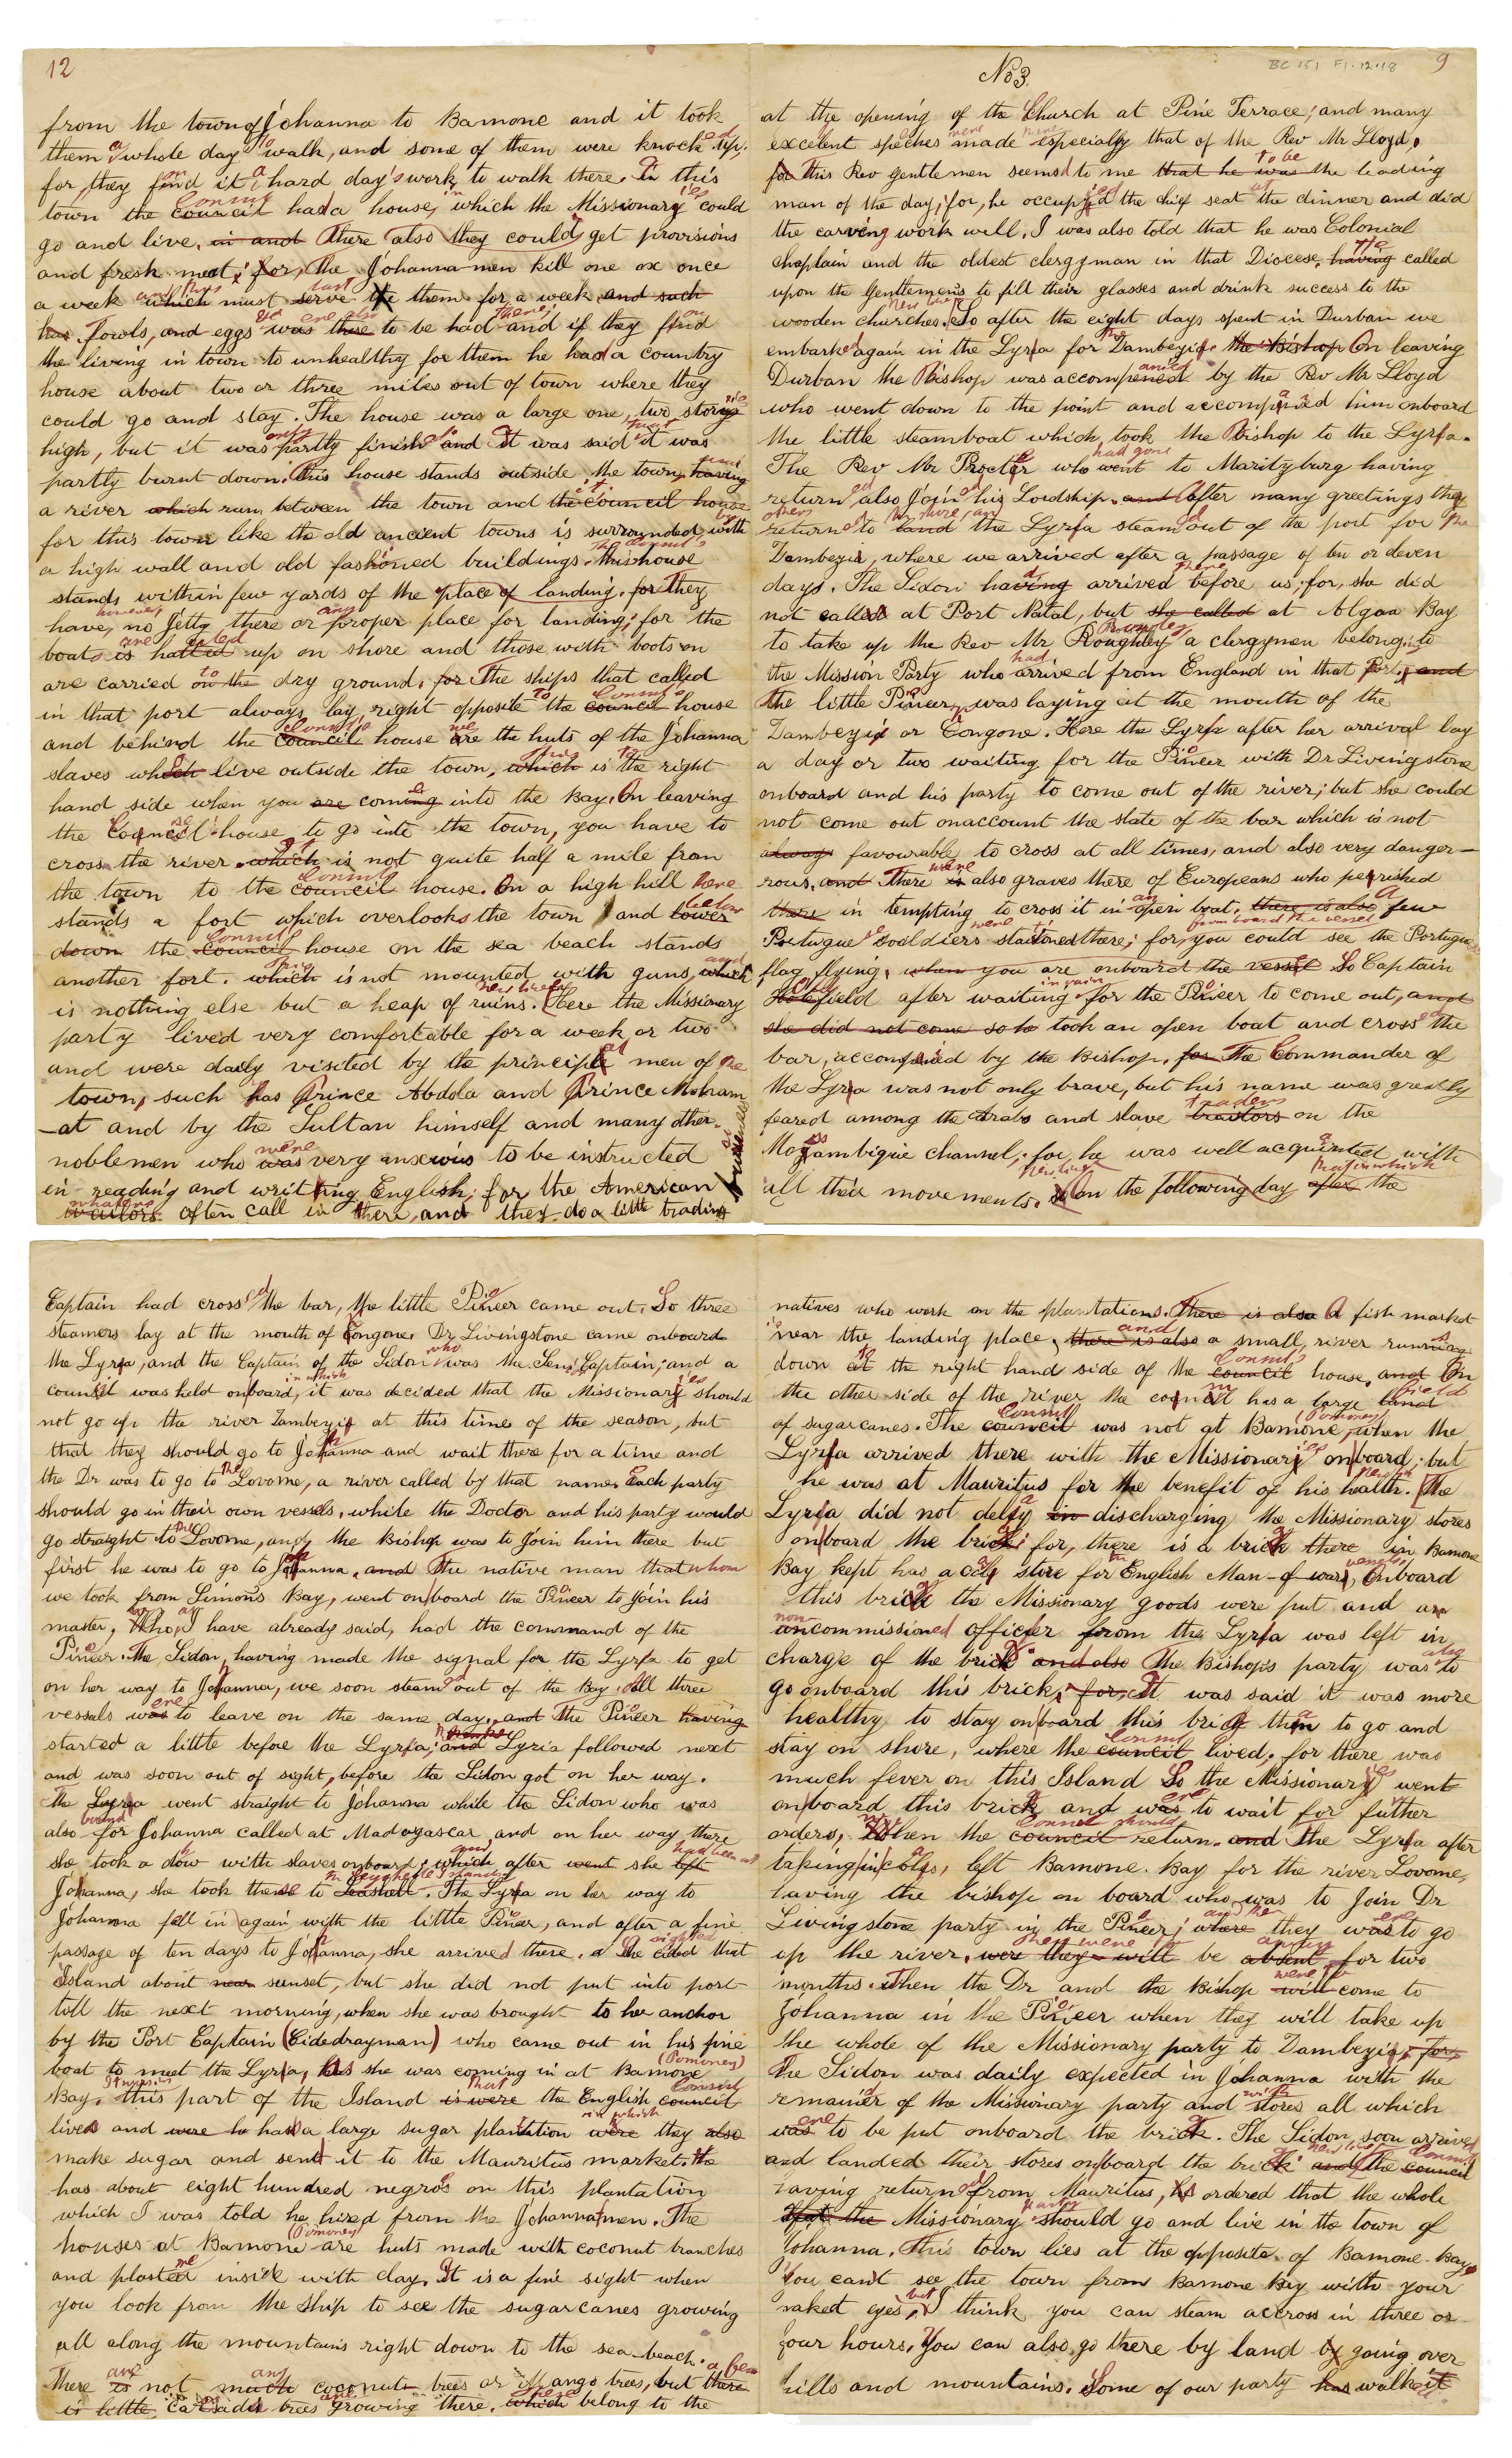 12
from the town of Johanna to Bamone and it took
them a whole day's walk, and some of them were knocked up,
for, they find it a hard day's work to walk there. In this
town the council Consul had a house, in which the Missionaries could
go and live, in and There also they could get provisions
and fresh meat; for, the Johanna men kill one ox once
a week which and this must serve last the them for a week and such
has Fowls, and eggs was there are also to be had there; and if they find
the living in town to unhealthy for them he had a country
house about two or three miles out of town where they
could go and stay. The house was a large one, two stories
high, but it was only partly finished and It was said it was
partly burnt down. This house stands outside the town, having
a river which run between the town and the council house it
for this town like the old ancient towns is surrounded with by
a high wall and old fashioned buildings. this The Consul's house
stands within few yards of the place of landing, for They
have, however, no Jetty there or any proper place for landing; for the
boats is are halled up on shore and those with boots on
are carried on the to dry ground, for The ships that called
in that port always lay right opposite to the council Consul's house
and behind the council Consul's house are the huts of the Johanna
slaves which live outside the town, which this is to the right
hand side when you are coming into the Bay. On leaving
the Council house to go into the town, you have to
cross the river which it is not quite half a mile from
the town to the council Consul's house. On a high hill here
stands a fort which overlooks the town and lower below
down the council Consul's house on the sea beach stands
another fort. which this is not mounted with guns which and
is nothing else but a heap of ruins. Here the Missionary
party lived very comfortable for a week or two
and were daily visited by the principal men of the
town, such has Prince Abdola and Prince Moham
-at and by the Sultan himself and many other
noblemen who was were very anxious to be instructed
in reading and writing English; for the American
whalers often call in there, and they do a little trading
9
BC 151 F1.12.18
No 3.
at the opening of the Church at Pine Terrace; and many
excelent speches were made especially that of the Rev Mr Lloyd.
for This Rev gentlemen seemsd to me that he was to be the leading
man of the day; for, he occupyied the chief seat at the dinner and did
the carveing work will. I was also told that he was Colonial
Chaplain and the oldest clergyman in that Diocese. having He called
upon the Gentlemens to fill their glasses and drink success to the
wooden churches. So after the eight days spent in Durban we
embarked again in the Lyra for the Zambeyi. the Bishop On leaving
Durban the Bishop was accompanied by the Rev Mr Lloyd
who went down to the point and accompanied him onboard
the little steamboat which took the Bishop to the Lyra.
The Rev Mr Procter who went had gone to Marityburg having
returned also Joined his Lordship. and After many greetings they
others returned to land the shore, and the Lyra steamed out of the port for the
Zambeyi, where we arrived after a passage of ten or eleven
days. The Sidon having had arrived there before us; for, she did
not called at Port Natal, but she called at Algoa Bay
to take up the Rev Mr Roughley Rowley a clergyman belonging to
the Mission Party who had arrived from England in that Port, and
the little Pineer, was laying at the mouth of the
Zambeyi or Congone. Here the Lyra after her arrival lay
a day or two waiting for the Pineer with Dr Livingstone
onboard and his party to come out of the river; but she could
not come out onaccount the state of the bar which is not
always favourable to cross at all times, and also very dange-
rous, and There is were also graves there of Europeans who perished
there in tempting to cross it in an open boat, there is also A few
Portugue soildiers were stationed there; for, you could see from board the vessel the Portugue
flag flying, when you are onboard the vessel So Captain
Oldfield after waiting in vain for the Pineer to come out, and
she did not come so he took an open boat and crossed the
bar, accompanied by the Bishop, for The Commander of
the Lyra was not only brave, but his name was greatly
feared among the Arabs and slave traitors traders on the
Mozambique channel; for, he was well acquainted with
all their movements. On the following day after that in which the
Captain had crossed the bar, the little Pineer came out. So three
steamers lay at the mouth of Congone. Dr Livingstone came onboard
the Lyra, and the Captain of the Sidon who was the Sen. Captain; and a
council was held onboard, in which it was decided that the Missionaries should
not go up the river Zambeyi at this time of the season, but
that they should go to Johanna and wait there for a time and
the Dr was to go to the Lovome, a river called by that name. Each party
should go in their own vessels, while the Doctor and his party would
go straight to the Lovome, and the Bishop was to Join him there but
first he was to go to Johanna, and The native man that whom
we took from Simons Bay, went onboard the Pineer to Join his
master, Who, as I have already said, had the command of the
Pineer. The Sidon, having made the signal for the Lyra to get
on her way to Johanna, we soon steamed out of the Bay. All three
vessels was were to leave on the same day, and The Pineer having
started a little before the Lyra; and the Lyra followed next
and was soon out of sight, before the Sidon got on her way.
the Lyra went straight to Johanna while the Sidon who was
also bound for Johanna called at Madagascar and on her way there
she took a dow with slaves onboard; which and after went she left had been at
Johanna, she took these to Seashell the Seychelle Islands. The Lyra on her way to
Johanna fell in again with the little Pineer, and after a fine
passage of ten days to Johanna, she arrived there. She sighted that
Island about near sunset, but she did not put into port
till the next morning, when she was brought to her anchor
by the Port Captain (Cidedrayman) who came out in his fine
boat to meet the Lyra, has she was coming in at Bamone (Pomoney)
Bay. It was in this part of the Island is were that the English council Consul
lives and were he had a large sugar plantation were in which they also
make sugar and sent it to the Mauritus market. He
has about eight hundred negros on this plantation
which I was told he hired from the Johanna men. The
houses at Bamone (Pomoney) are huts made with coconut branches
and plastered inside with clay. It is a fine sight when
you look from the ship to see the sugarcanes growing
all along the mountains right down to the sea-beach.
There is are not much any coconut trees or Mango trees, but there a few
is little trees growing there, which belong to the
natives who work on the plantations. There is also A fish market
is near the landing place, there is also and a small river running
down at the right hand side of the council Consul's house. and On
the other side of the river the council has a large land field
of sugarcanes. The council Consul was not at Bamone (Pomoney), when the
Lyra arrived there with the Missionaries onboard; but
he was at Mauritus for the benefit of his health. The
Lyra did not delay in discharging the Missionary stores
onboard the brick; for, there is a brick there in Bamone
Bay kept has a coal store for English Man-of war. Onboard
this brick the Missionary goods were put and an
uncommissioned non officier from the Lyra was left in
charge of the brick and also The Bishop's party was also to
go onboard this brick; for, It was said it was more
healthy to stay onboard this brick than to go and
stay on shore, where the council Consul lived; for there was
much fever on this Island So the Missionaries went
onboard this brick and was were to wait for further
orders, When the council Consul should return. and The Lyra after
taking in coals, left Bamone Bay for the river Lovome,
having the bishop on board who was to Join Dr
Livingstone party in the Pineer; where and they was were to go
up the river, were they will they were to be absent for two
months. When the Dr and the Bishop will were to come to
Johanna in the Pineer when they will take up
the whole of the Missionary party to Zambeyi, for,
The Sidon was daily expected in Johanna with the
remainer of the Missionary party and with stores all which
was were to be put onboard the brick. The Sidon soon arrived
and landed their stores onboard the brick and the council Consul
having returned from Mauritus, he ordered that the whole
that the Missionary party should go and live in the town of
Johanna. This town lies at the opposite of Bamone Bay.
You can't see the town from Bamone Bay with your
naked eyes, but I think you can steam accross in three or
four hours, You can also go there by land by going over
hills and mountains. Some of our party has walk it